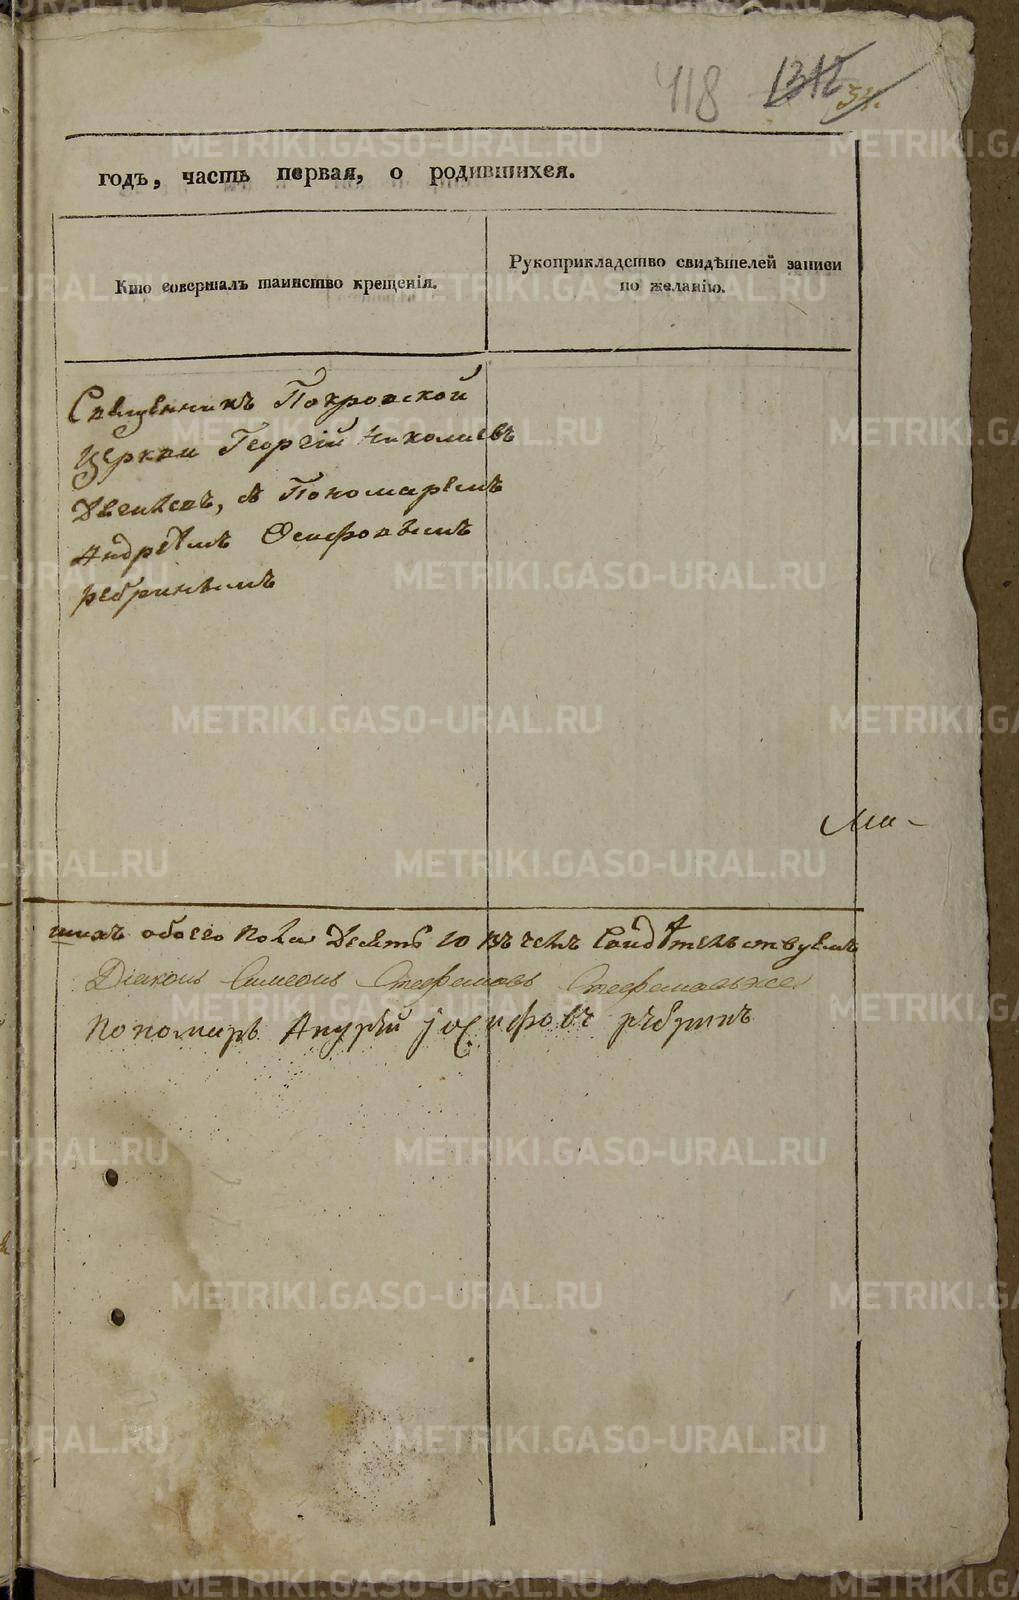 418 1312 34.
годъ, часть первая, о родившихся.
Кто совершалъ таинство крещенія.
Рукоприкладство свидѣтелей записи
по желанію.
Священникъ Покровской
церкви Георгій Николаевъ
съ Пономаремъ
Андреѣмъ Осифовымъ
ребринымъ
Ма-
шихъ обоего пола Десять 10 въ чемъ Свидѣтельствуемъ
Діаконъ Симеонъ Стефановъ
Пономарь Андрѣй Іосифовъ рѣбринъ
METRIKI.GASO-URAL.RU